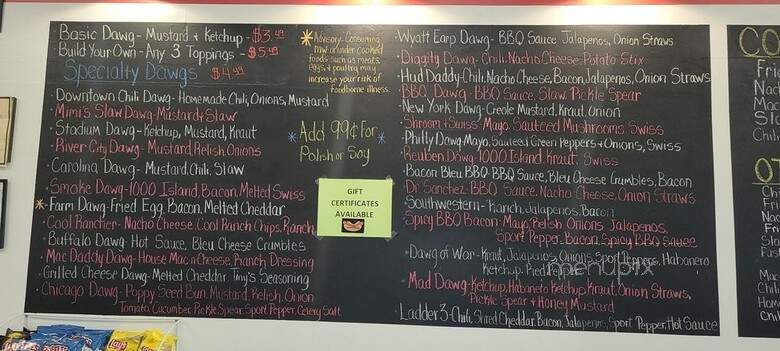 Basic Dawg - Mustard & Ketchup - $3.49
Build Your Own - Any 3 Toppings - $5.49
Specialty Dawgs $4.99
Downtown Chili Dawg - Homemade Chili, Onions, Mustard
Mimi's Slaw Dawg - Mustard & Slaw
Stadium Dawg - Ketchup, Mustard, Kraut
River City Dawg - Mustard, Relish, Onions
Carolina Dawg - Mustard, Chili, Slaw
Smoke Dawg - 1000 Island, Bacon, Melted Swiss
* Farm Dawg - Fried Egg, Bacon, Melted Cheddar
Cool Rancher - Nacho Cheese, Cool Ranch Chips, Ranch
Buffalo Dawg - Hot Sauce, Bleu Cheese Crumbles
Mac Daddy Dawg - House Mac n Cheese, Ranch Dressing
Grilled Cheese Dawg - Melted Cheddar, Tiny's Seasoning
Chicago Dawg - Poppy Seed Bun, Mustard, Relish, Onion
Tomato, Cucumber, Pickle Spear, Sport Pepper, Celery Salt
* Advisory: Consuming
raw or under cooked
foods such as meats,
eggs & poultry may
increase your risk of
foodborne illness.
* Add 99¢ For *
Polish or Soy
GIFT
CERTIFICATES
AVAILABLE
Wyatt Earp Dawg - BBQ Sauce Jalapenos, Onion Straws
Diggity Dawg - Chili, Nacho Cheese, Potato Stix
Hud Daddy - Chili, Nacho Cheese, Bacon, Jalapenos, Onion Straws
BBQ Dawg - BBQ Sauce, Slaw, Pickle Spear
New York Dawg - Creole Mustard, Kraut, Onion
Shroom & Swiss - Mayo, Sauteed Mushrooms, Swiss
Philly Dawg - Mayo, Sauteed Green Peppers & Onions, Swiss
Reuben Dawg - 1000 Island, Kraut, Swiss
Bacon Bleu BBQ - BBQ Sauce, Bleu Cheese Crumbles, Bacon
Dr. Sanchez - BBQ Sauce, Nacho Cheese, Onion Straws
Southwestern - Ranch, Jalapenos, Bacon
Spicy BBQ Bacon - Mayo, Relish, Onions, Jalapenos,
Sport Pepper, Bacon, Spicy BBQ Sauce
Dawg of War - Kraut, Jalapenos, Onions, Sport Peppers, Habanero
Ketchup,
Mad Dawg - Ketchup, Habanero Ketchup, Kraut, Onion Straws,
Pickle Spear & Honey Mustard
Ladder 3 - Chili, Shred Cheddar, Bacon, Jalapenos, Sport Pepper, Hot Sauce
menupix
Lay's